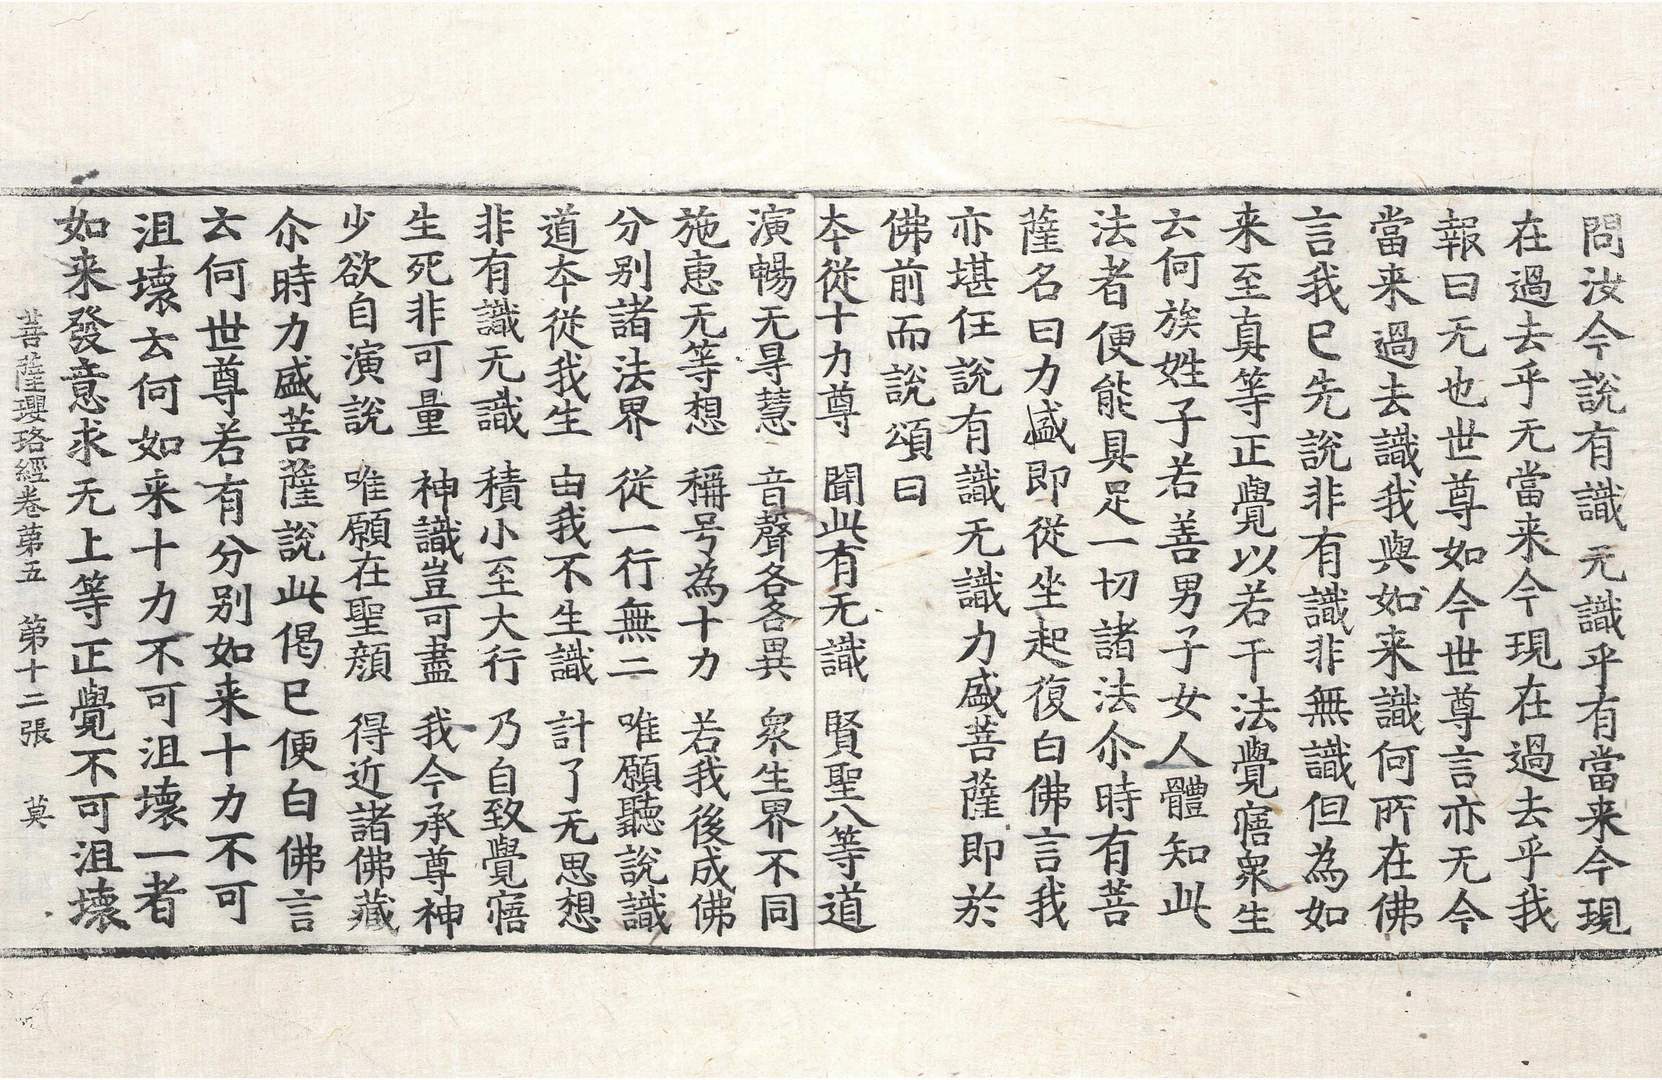 問汝今說有識无識乎有當来今現
在過去乎无當来今現在過去乎我
報曰无也世尊如今世尊言亦无今
當来過去識我與如来識何所在佛
言我已先說非有識非無識但為如
来至真等正覺以若干法覺寤衆生
去何族姓子若善男子女人體知此
法者便能具足一切諸法尒時有菩
薩名曰力盛即從坐起復白佛言我
亦堪任說有識无識力盛菩薩即於
佛前而說頌曰
夲從十力尊 聞此有无識 賢聖八等道
演暢无㝵慧 音聲各各異 衆生界不同
施恵无等想 稱号為十力 若我後成佛
分别諸法界 從一行無二 唯願聽說識
道夲從我生 由我不生識 計了无思想
非有識无識 積小至大行 乃自致覺寤
生死非可量 神識豈可盡 我今承尊神
少欲自演說 唯願在聖顔 得近諸佛藏
尒時力盛菩薩說此偈已便白佛言
云何世尊若有分别如来十力不可
沮壞去何如来十力不可沮壞一者
如来發意求无上等正覺不可沮壞
菩薩瓔珞經卷第五 第十二張 莫